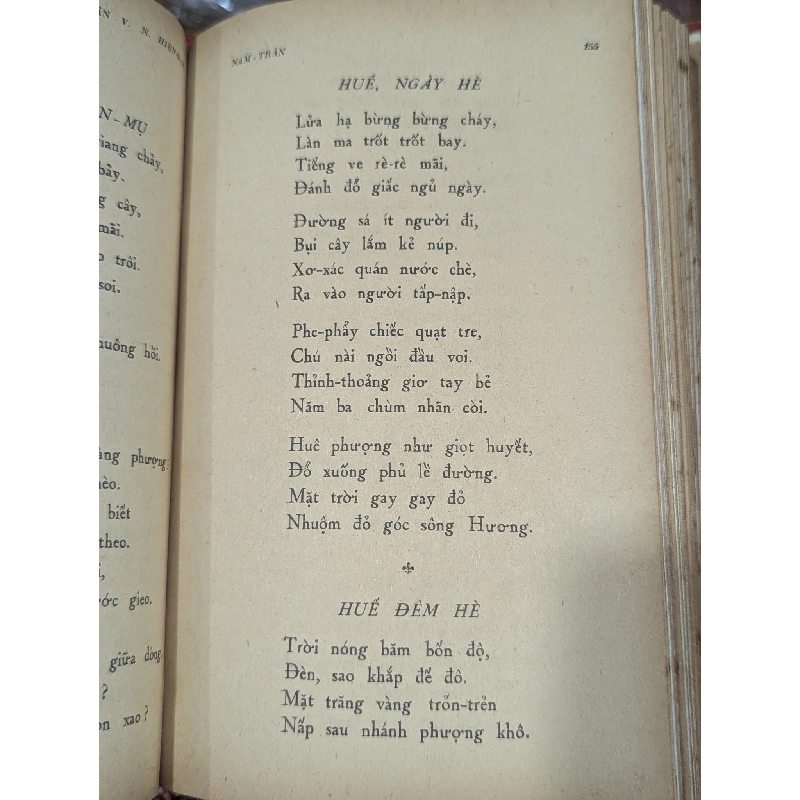 V. N. HIỆN
N-MỤ
giang chảy,
bảy.
cây,
mãi.
trôi.
soi.
chuông hồi.
phượng
biết
theo.
gieo.
giữa dòng
?
xao?
NAM-TRÂN 155
HUẾ, NGÀY HÈ
Lửa hạ bừng bừng cháy,
Làn ma trốt trốt bay.
Tiếng ve rè-rè mãi,
Đánh đổ giấc ngủ ngày.
Đường sá ít người đi,
Bụi cây lắm kẻ núp.
Xơ-xác quán nước chè,
Ra vào người tấp-nập.
Phe-phẩy chiếc quạt tre,
Chú nài ngồi đầu voi.
Thỉnh-thoảng giơ tay bẻ
Năm ba chùm nhãn còi.
Huê phượng như giọt huyết,
Đỏ xuống phủ lề đường.
Mặt trời gay gay đỏ
Nhuộm đỏ góc sông Hương.
HUẾ ĐÊM HÈ
Trời nóng băm bốn độ,
Đèn, sao khắp đế đô.
Mặt trăng vàng trổn-trẻn
Nấp sau nhánh phượng khô.